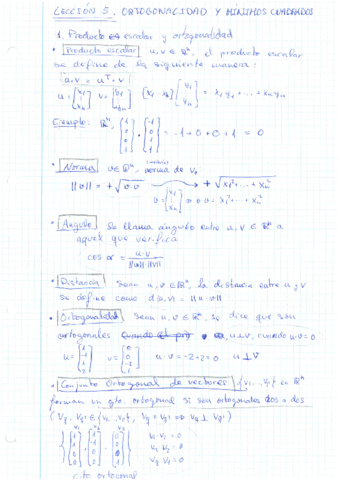 LECCIÓN 5. ORTOGONALIDAD Y MÍNIMOS CUADRADOS
1. Producto escalar y ortogonalidad
• Producto escalar u, v ∈ ℝⁿ, el producto escalar
se define de la siguiente manera:
u·v = uᵀ·v
u = [x₁ ⋮ xₙ] v = [y₁ ⋮ yₙ] [x₁ ... xₙ] [y₁ ⋮ yₙ] = x₁y₁ + ... + xₙyₙ
Ejemplo: = -1+0+0+1 = 0
• Norma v ∈ ℝⁿ, norma de v,
||v|| = +√v·v → +√x₁²+...+xₙ²
v = [x₁ ⋮ xₙ] v·v = x₁²+...+xₙ²
• Ángulo Se llama ángulo entre u, v ∈ ℝⁿ a
aquel que verifica
cos α = u·v / ||u|| ||v||
• Distancia Sean u, v ∈ ℝⁿ, la distancia entre u y v
se define como d(u,v) = ||u-v||
• Ortogonalidad Sean u, v ∈ ℝⁿ, se dice que son
ortogonales u⊥v, cuando u·v=0
u = v = u·v = -2+2=0 u⊥v
• Conjunto Ortogonal de vectores {v₁...vₚ} en ℝⁿ
forman un cjto. ortogonal si son ortogonales dos a dos
v₁ v₂ v₃
v₁ v₂ = 0
v₁ v₃ = 0
v₂ v₃ = 0
cjto ortogonal